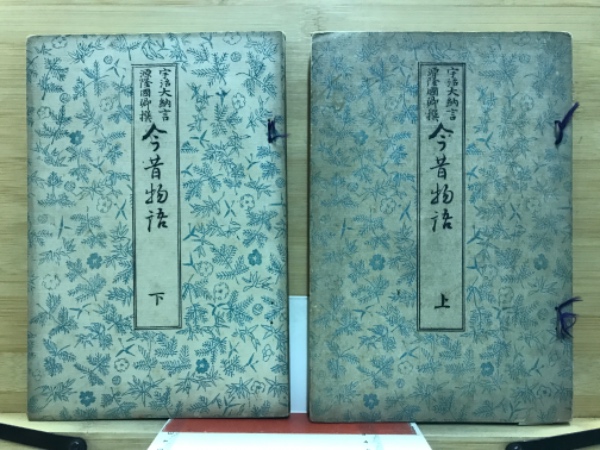 宇治大納言
源隆國卿撰
今昔物語
下
宇治大納言
源隆國卿撰
今昔物語
上